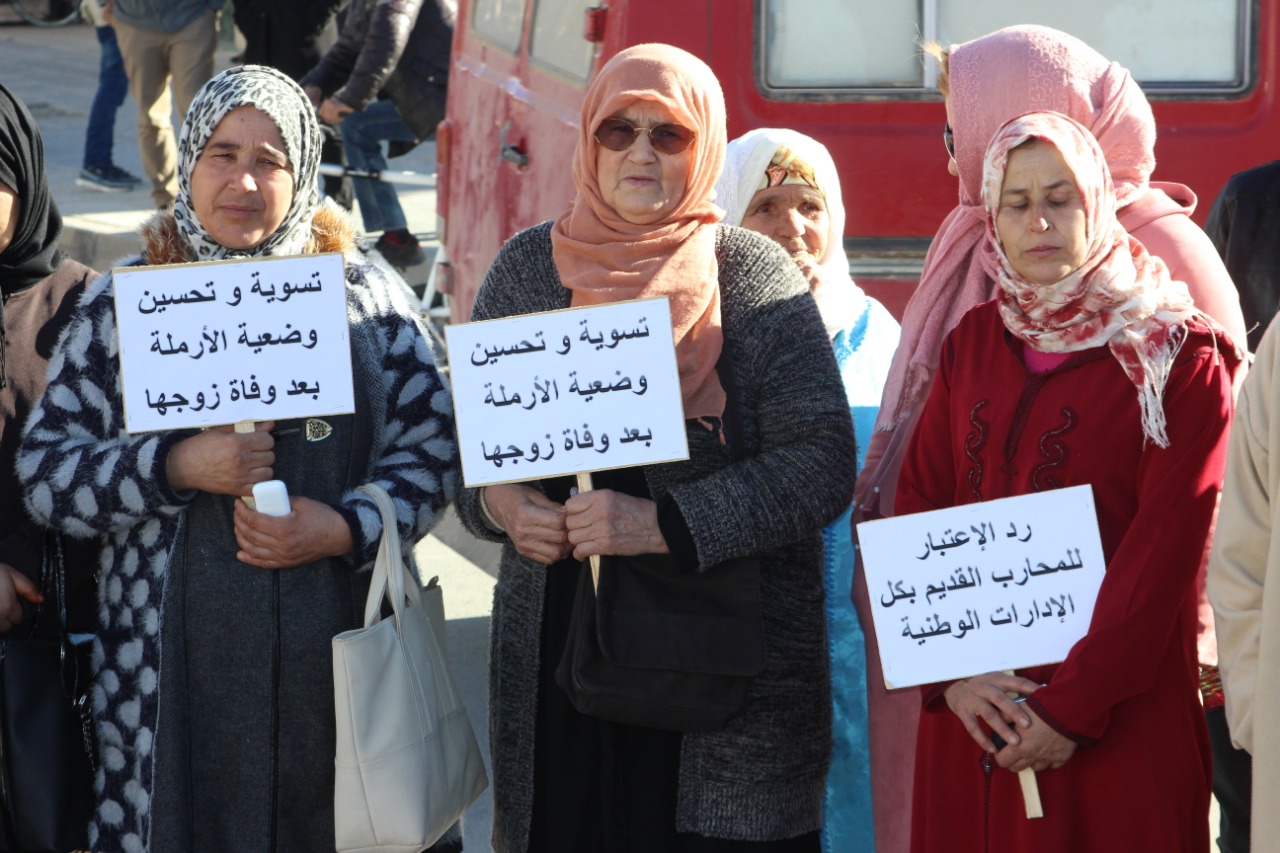 تسوية و تحسين
وضعية الأرملة
بعد وفاة زوجها
تسوية و تحسين
وضعية الأرملة
بعد وفاة زوجها
رد الإعتبار
للمحارب القديم بكل
الإدارات الوطنية